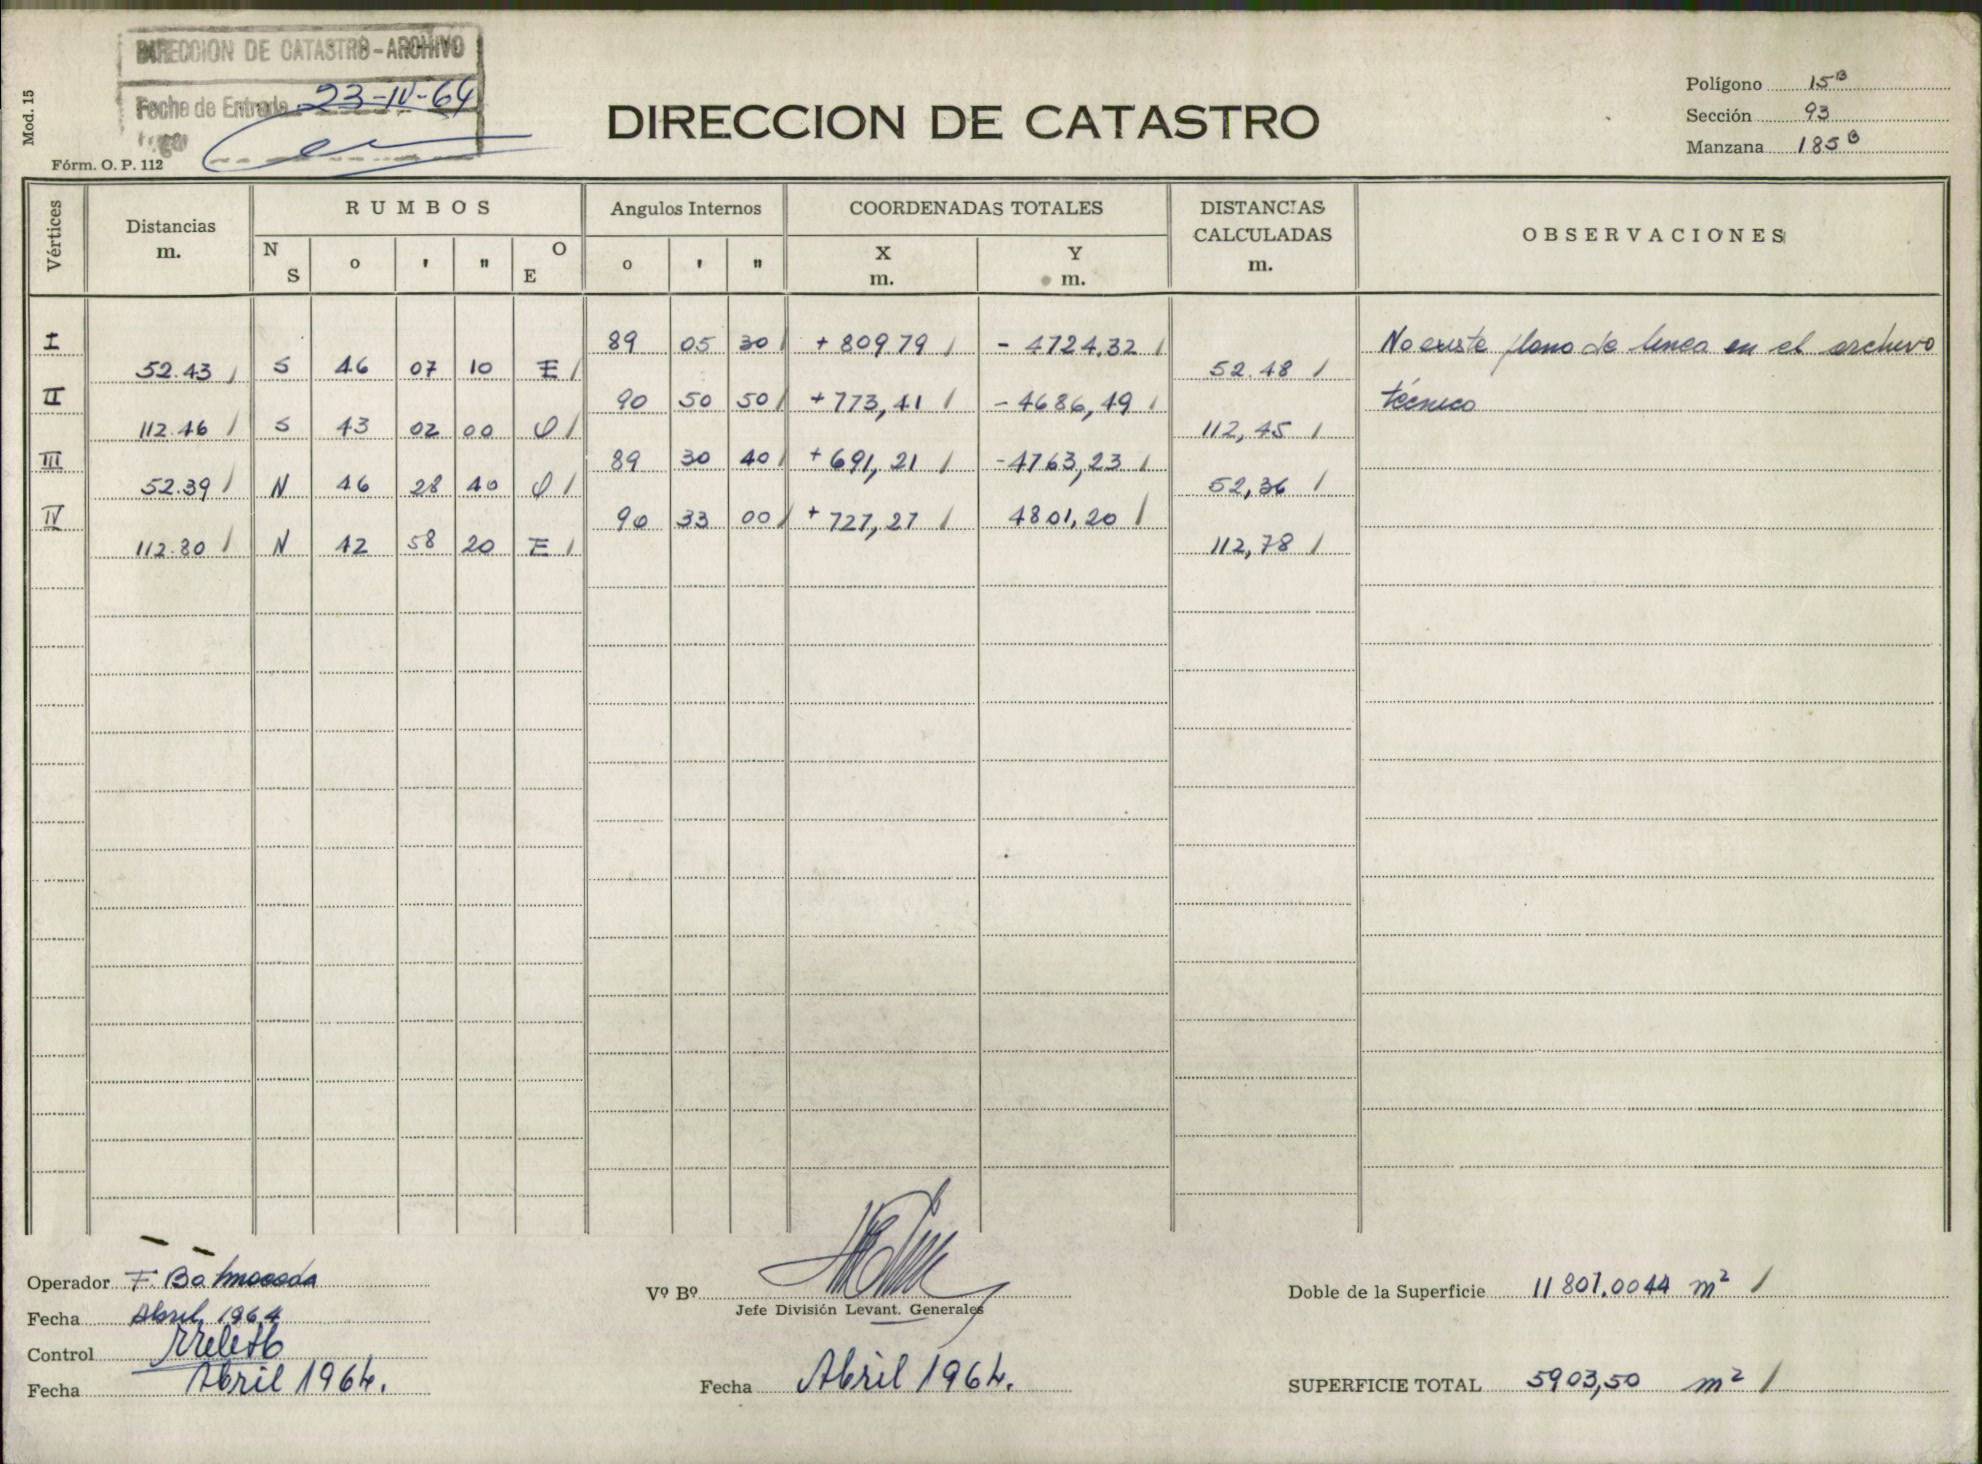 DIRECCION DE CATASTRO-ARCHIVO
Fecha de Entrada 23-IV-64
Mod. 15
Fórm. O. P. 112
DIRECCION DE CATASTRO
Polígono 15B
Sección 93
Manzana 185B
Vértices Distancias m. RUMBOS Angulos Internos COORDENADAS TOTALES DISTANCIAS CALCULADAS m. OBSERVACIONES
N S o ' " O E o ' " X m. Y m.
I 89 05 30 / + 809.79 / - 4724,32 / No existe plano de linea en el archivo
52.43 / S 46 07 10 E / 52.48 /
II 90 50 50 / + 773,41 / - 4686,49 / técnico
112.46 / S 43 02 00 O / 112,45 /
III 89 30 40 / + 691,21 / - 4763,23 /
52.39 / N 46 28 40 O / 52,36 /
IV 90 33 00 / + 727,27 / 4801,20 /
112.80 / N 42 58 20 E / 112,78 /
Operador F. Balmaceda
Fecha Abril, 1964
Control
Fecha Abril 1964.
Vº Bº
Jefe División Levant. Generales
Fecha Abril 1964.
Doble de la Superficie 11807.0044 m² /
SUPERFICIE TOTAL 5903,50 m² /